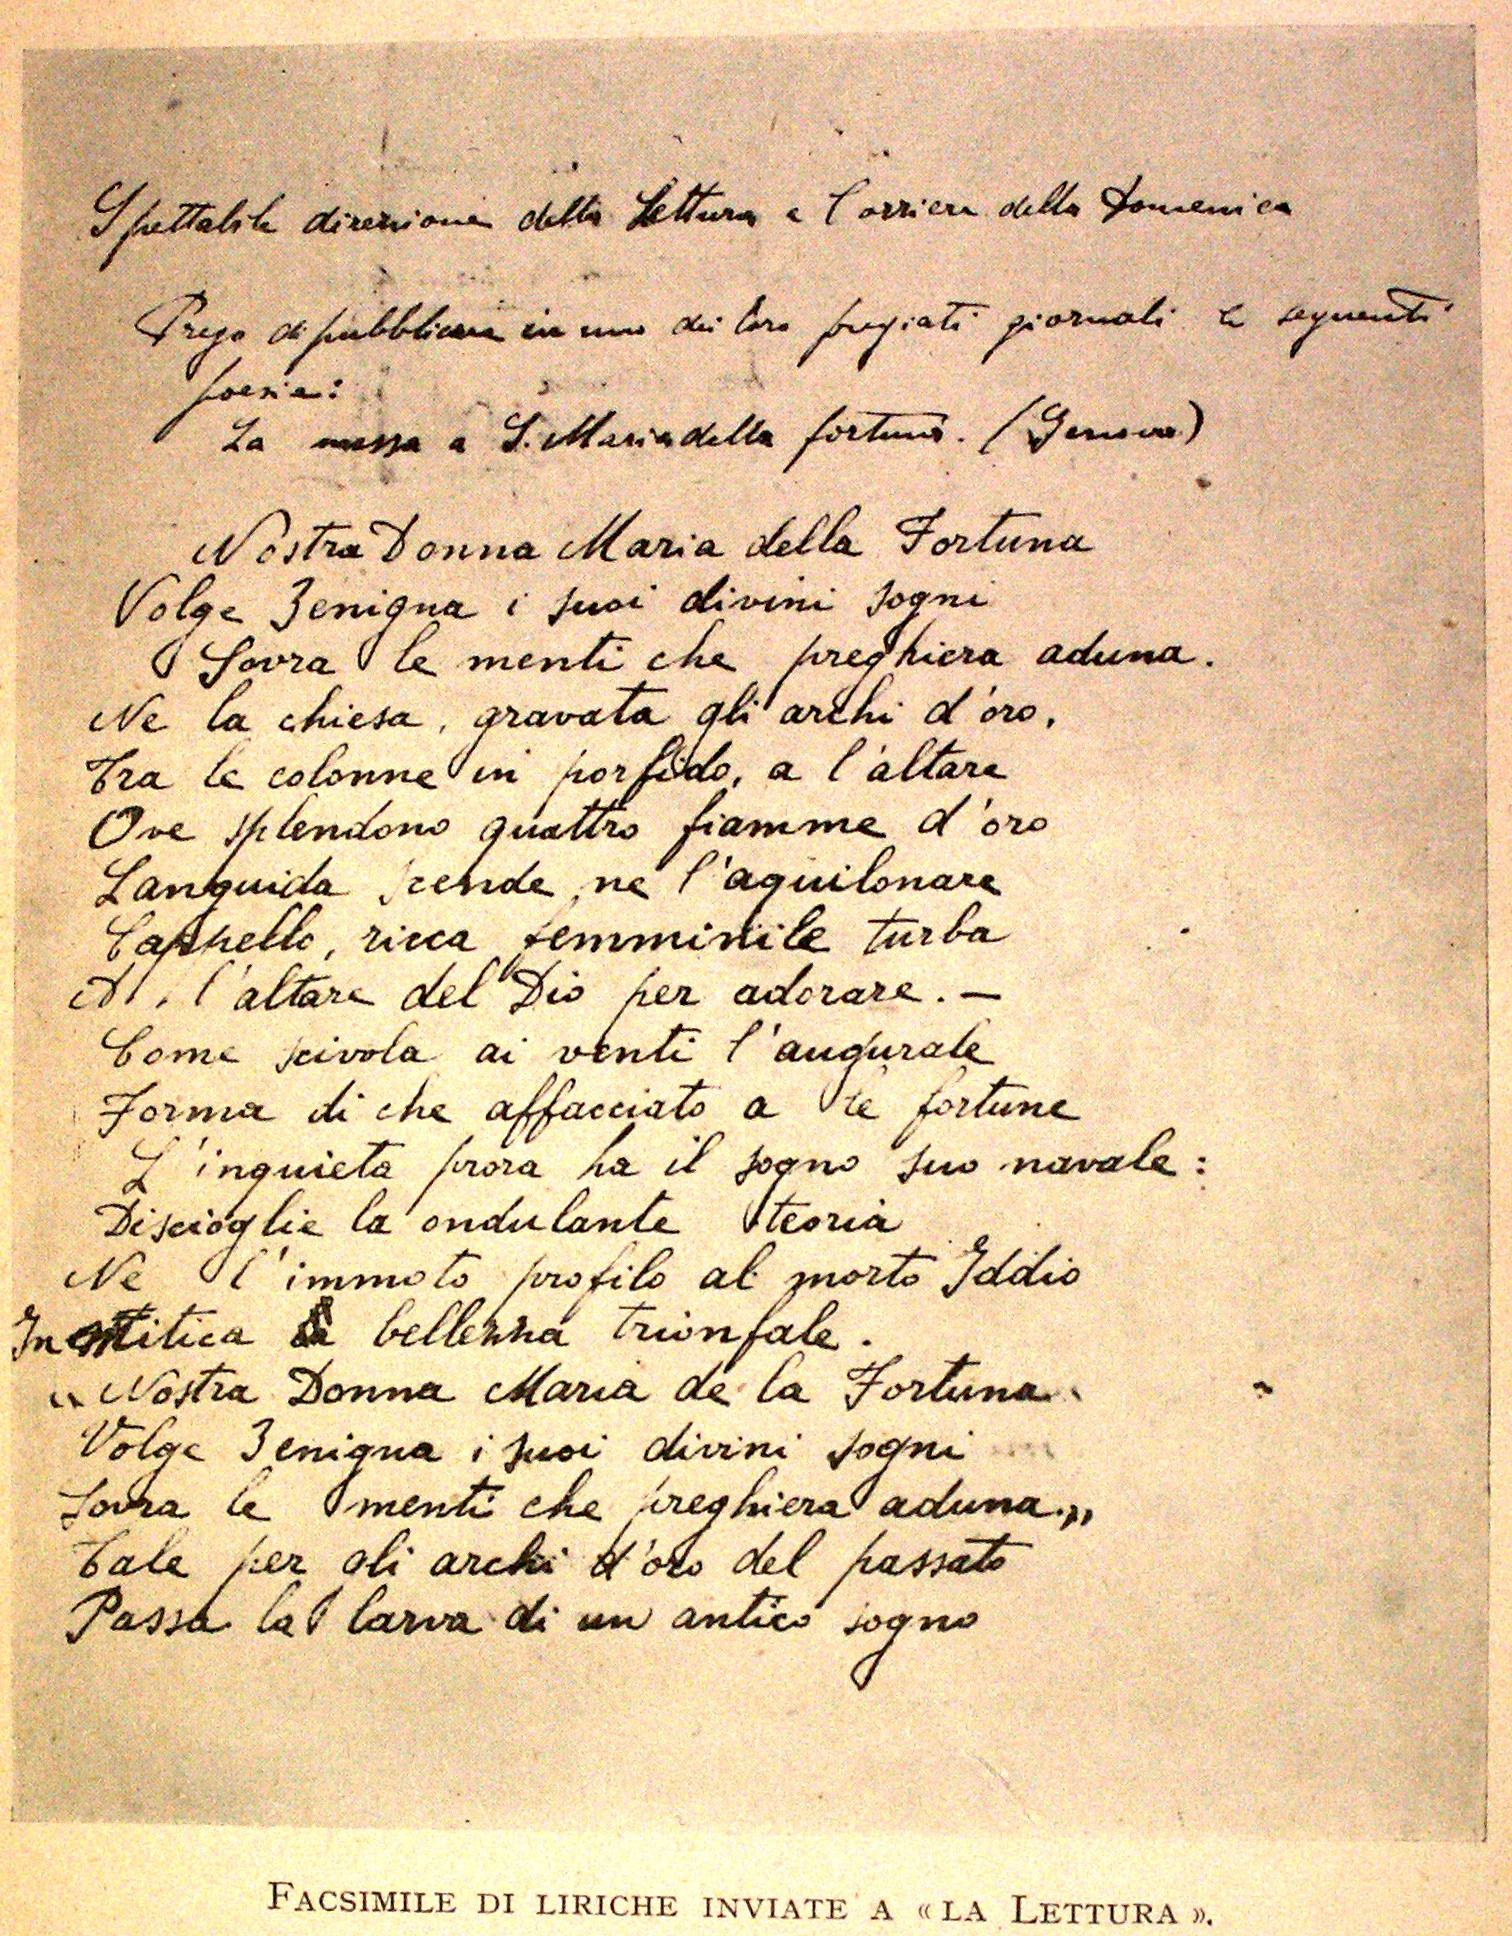 Spettabile direzione della Lettura e Corriere della Domenica
Prego di pubblicare in uno dei loro pregiati giornali le seguenti
poesie:
La messa a S. Maria della fortuna. (Genova)
Nostra Donna Maria della Fortuna
Volge Benigna i suoi divini sogni
Sovra le menti che preghiera aduna.
Ne la chiesa, gravata gli archi d'oro,
Tra le colonne in porfido, a l'altare
Ove splendono quattro fiamme d'oro
Languida scende ne l'aquilonare
Cappello, ricca femminile turba
A l'altare del Dio per adorare. —
Come scivola ai venti l'augurale
Forma di che affacciato a le fortune
L'inquieta prora ha il sogno suo navale:
Discioglie la ondulante teoria
Ne l'immoto profilo al morto Iddio
In bellezza trionfale.
„ Nostra Donna Maria de la Fortuna
Volge Benigna i suoi divini sogni
Sovra le menti che preghiera aduna.„
Tale per gli archi d'oro del passato
Passa la larva di un antico sogno
FACSIMILE DI LIRICHE INVIATE A « LA LETTURA ».